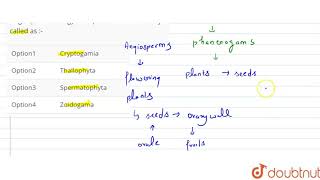 called as :-
Option1 Cryptogamia
Option2 Thallophyta
Option3 Spermatophyta
Option4 Zoidogama
Angiosperms
↓
flowering
plants
↳ seeds → ovary wall
↑ ↓
ovule fruits
↓
phanerogams
↓
plants → seeds
doubtnut